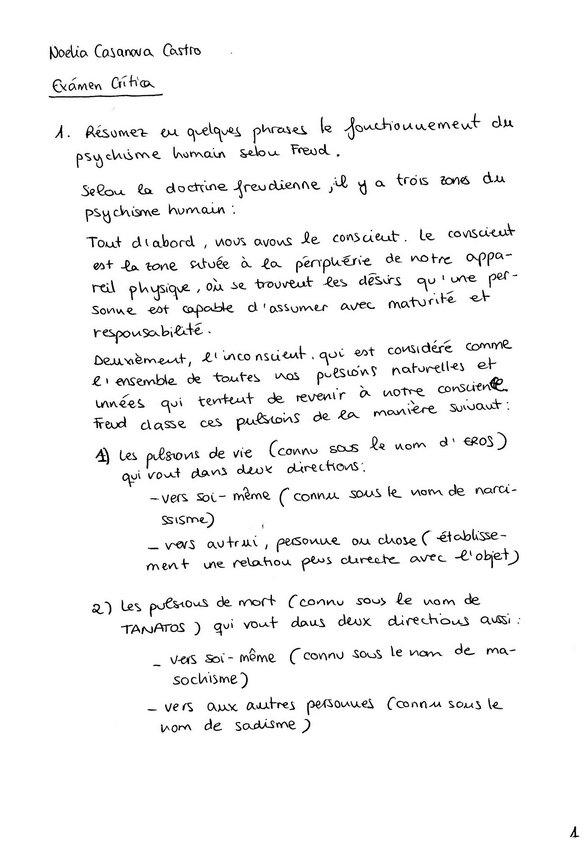 Noelia Casanova Castro
Exámen Crítica
1. Résumez en quelques phrases le fonctionnement du
psychisme humain selon Freud.
Selon la doctrine freudienne, il y a trois zones du
psychisme humain :
Tout d'abord, nous avons le conscient. Le conscient
est la zone située à la périphérie de notre appa-
reil physique, où se trouvent les désirs qu'une per-
sonne est capable d'assumer avec maturité et
responsabilité.
Deuxièment, l'inconscient. qui est considéré comme
l'ensemble de toutes nos pulsions naturelles et
innées qui tentent de revenir à notre conscience.
Freud classe ces pulsions de la manière suivant :
1) Les pulsions de vie (connu sous le nom d'EROS)
qui vont dans deux directions :
- vers soi-même (connu sous le nom de narci-
ssisme)
- vers autrui, personne ou chose (établisse-
ment une relation plus directe avec l'objet)
2) Les pulsions de mort (connu sous le nom de
TANATOS) qui vont dans deux directions aussi :
- vers soi-même (connu sous le nom de ma-
sochisme)
- vers aux autres personnes (connu sous le
nom de sadisme)
1